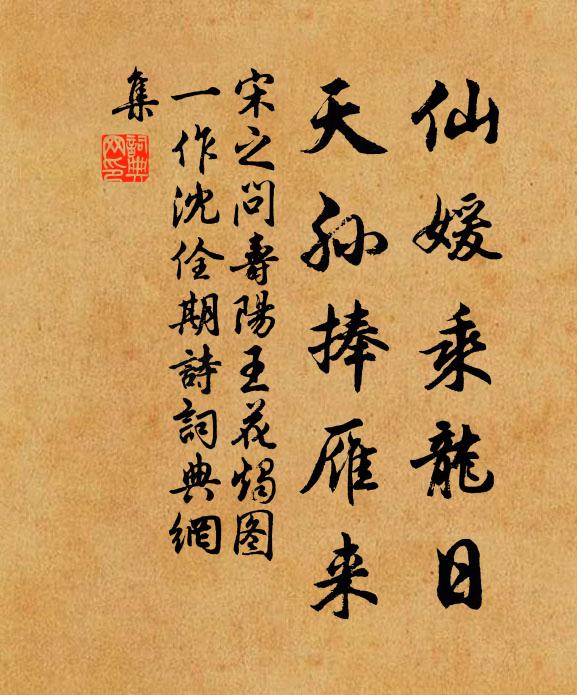 仙媛乘龍日
天孙捧雁来
宋之问壽陽王花燭图
一作沈佺期詩詞典網
集
詞典網印